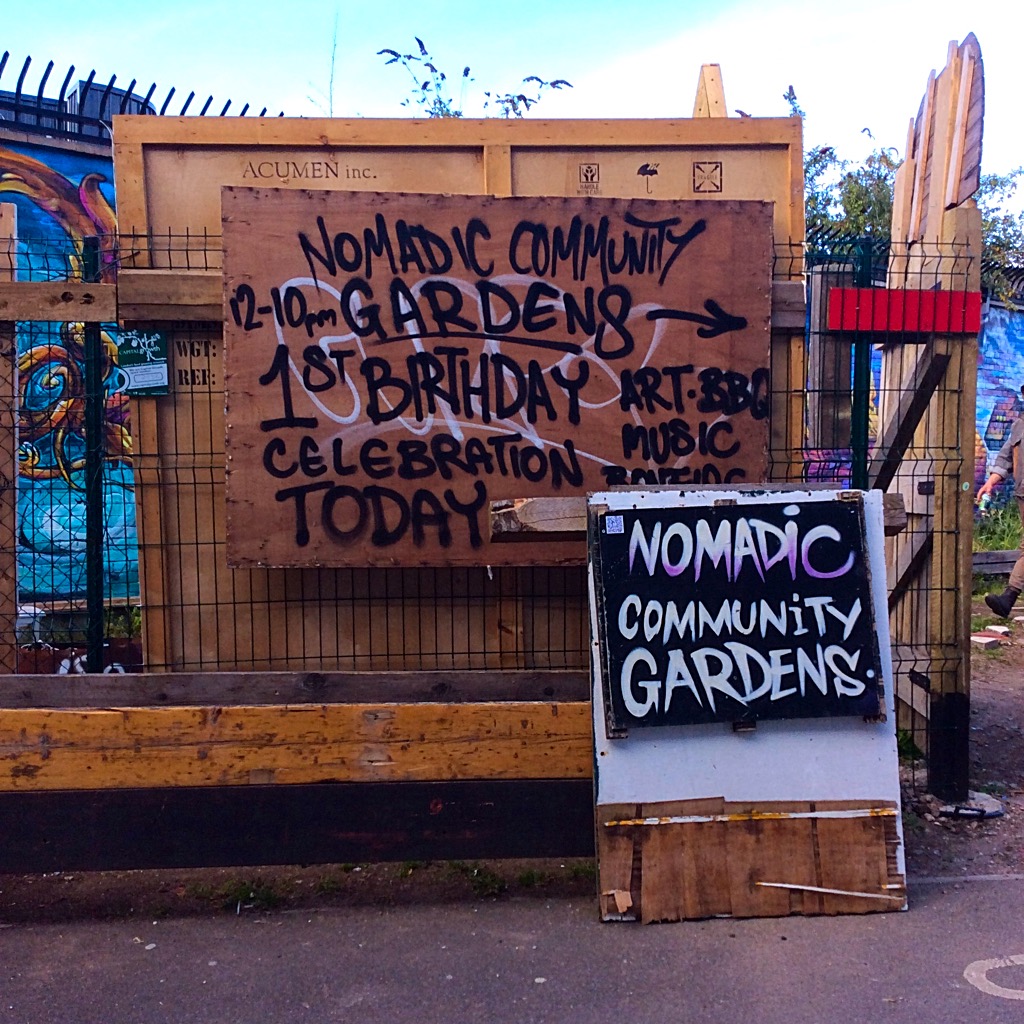 ACUMEN inc.
HANDLE
WITH CARE
NOMADIC COMMUNITY
12-10pm GARDENS
1ST BIRTHDAY
CELEBRATION
TODAY
ART·BBQ
MUSIC
WGT:
REF:
CAPITAL
NOMADiC
COMMUNiTY
GARDENS.